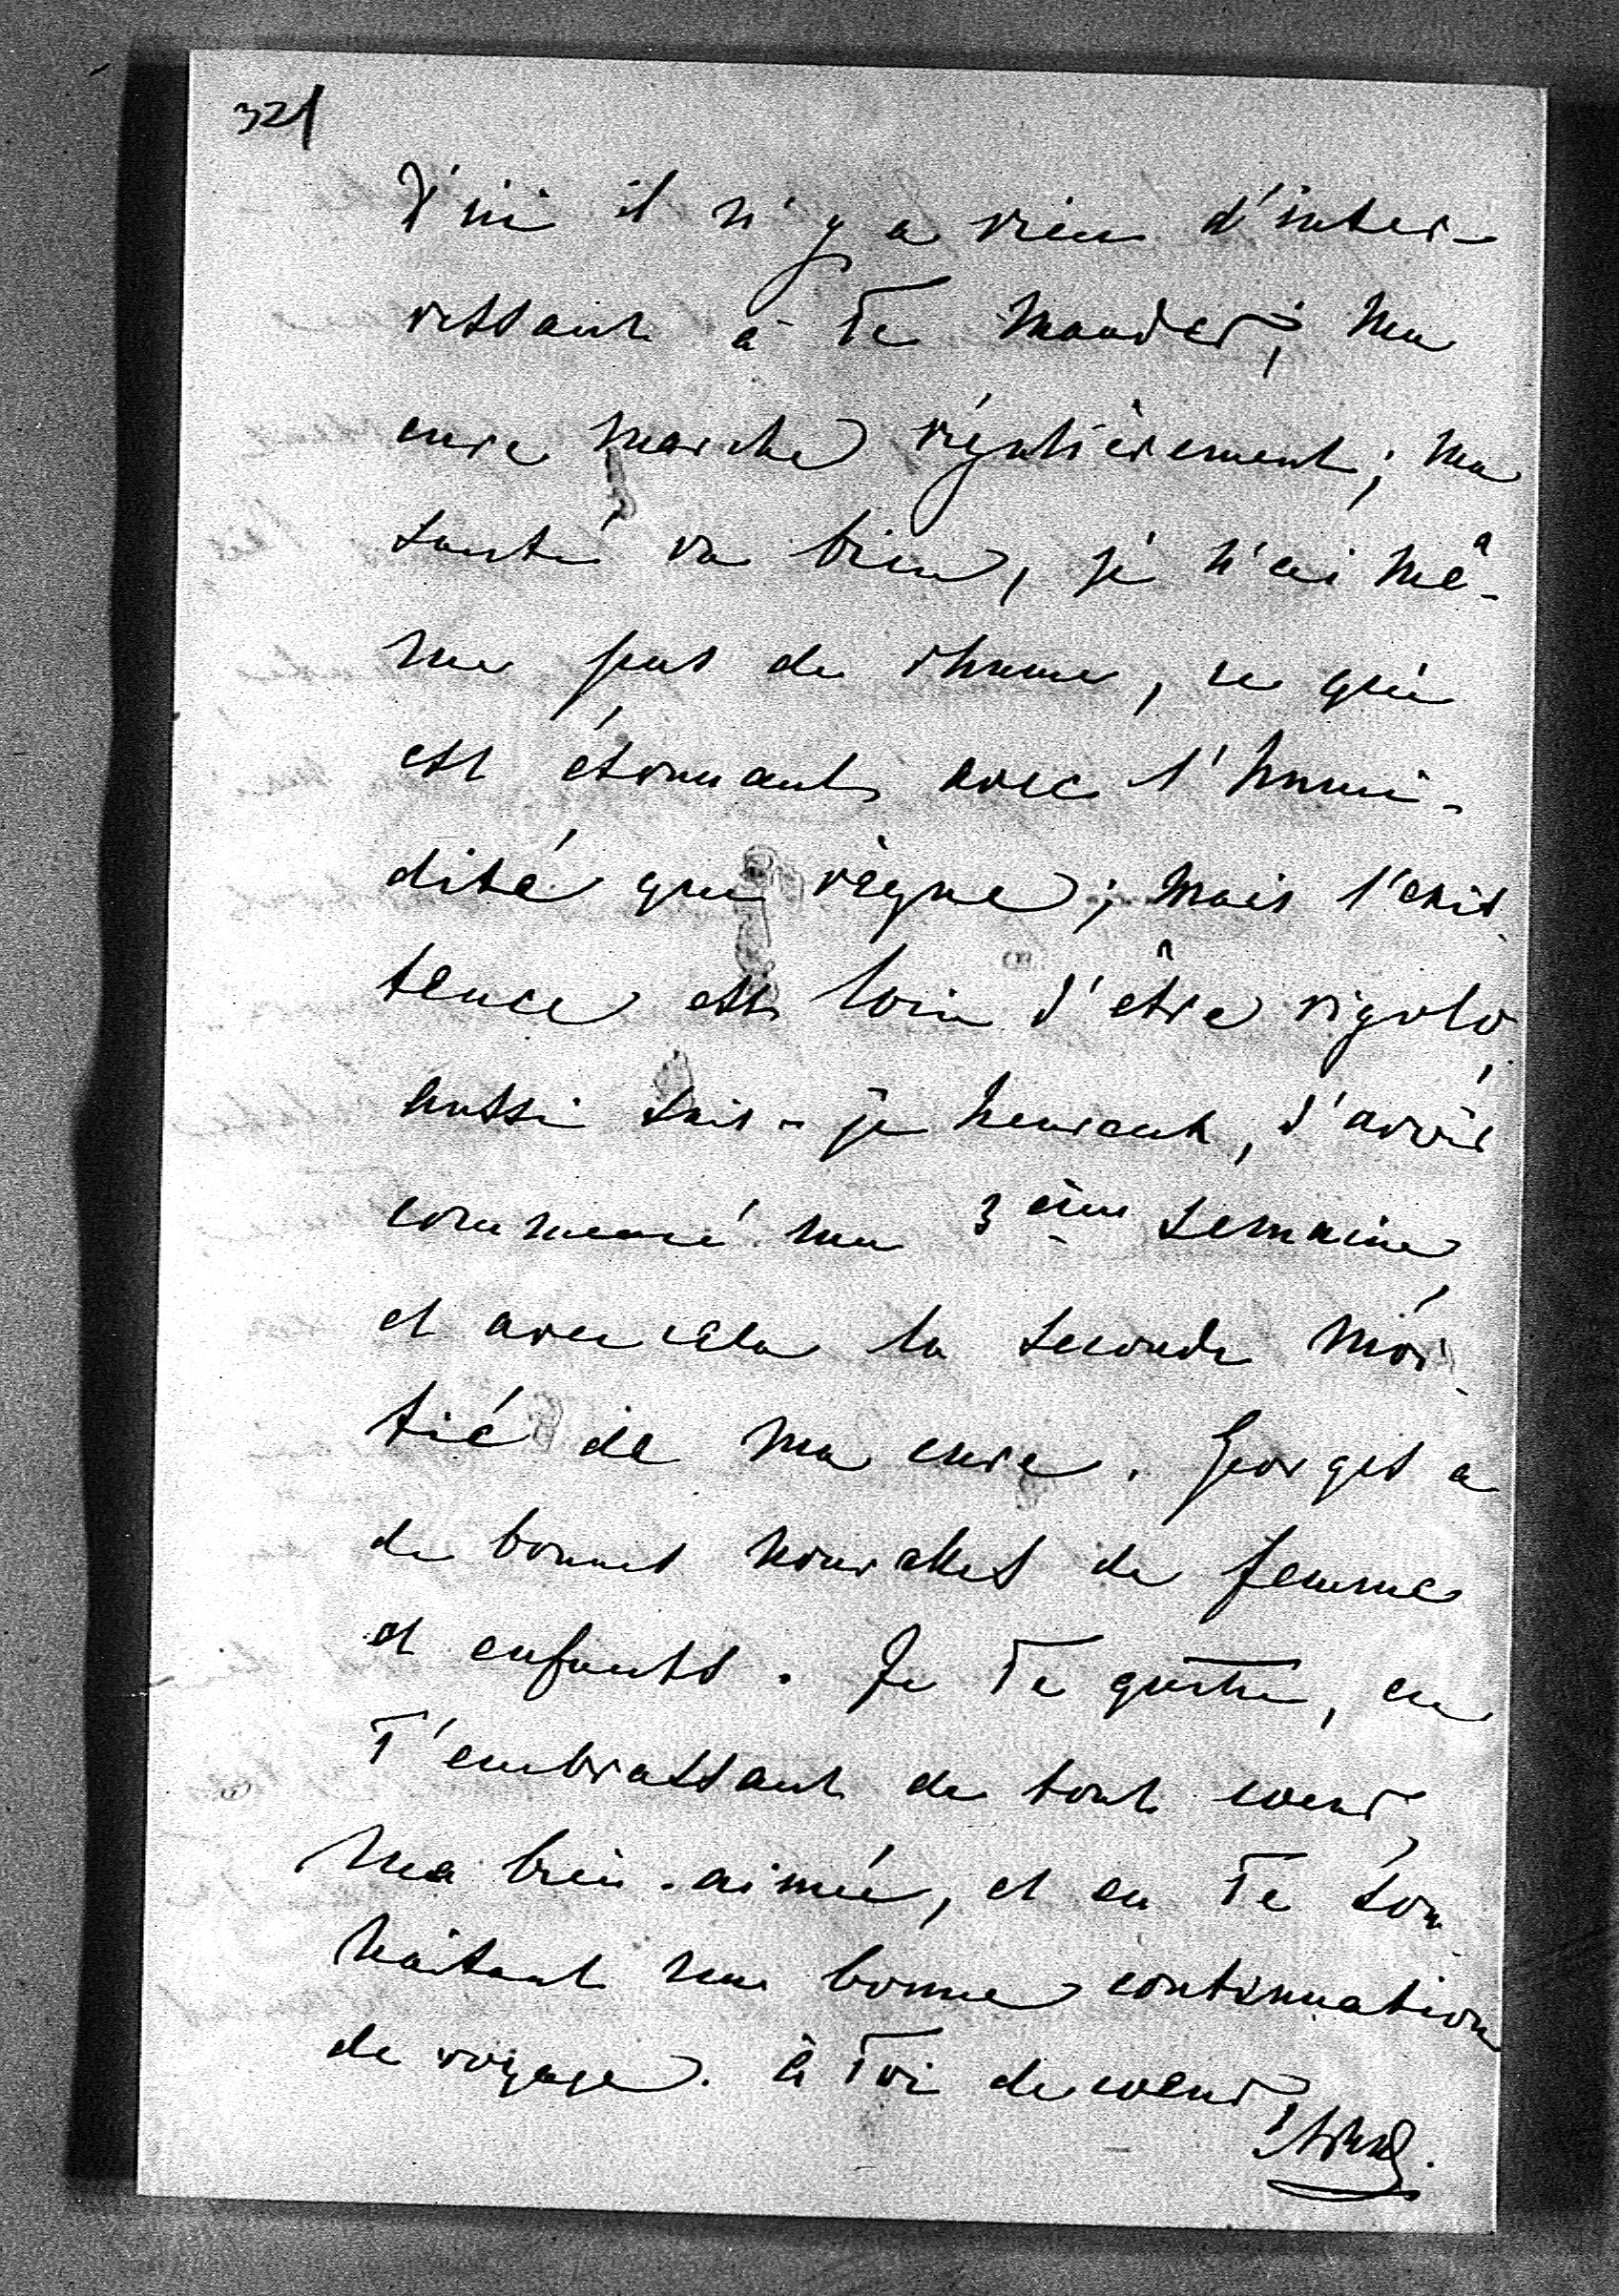 321
D'ici il n'y a rien d'inter-
ressant à Te mander; ma
cure marche régulièrement; ma
santé va bien, je n'ai mê-
me pas de rhume, ce qui
est étonnant avec l'humi-
dité qui règne; mais l'exis-
tence est loin d'être rigolo,
aussi suis-je heureux, d'avoir
commencé ma 3ème semaine,
et avec cela la seconde moi-
tié de ma cure. Georges a
de bonnes nouvelles de femme
et enfants. Je Te quitte, en
T'embrassant de tout coeur,
ma bien-aimée, et en Te sou-
haitant une bonne continuation
de voyage. à Toi de coeur,